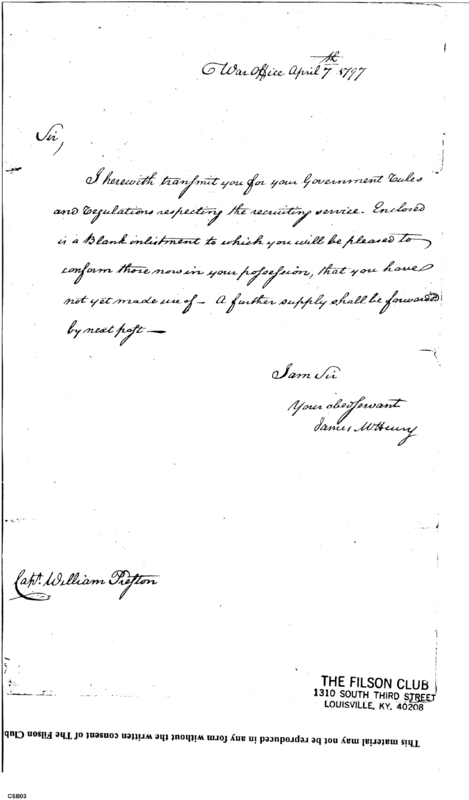 War Office April 7th 1797
Sir,
I herewith transmit you for your Government Rules
and Regulations respecting the recruiting service. Enclosed
is a Blank inlistment to which you will be pleased to
conform those now in your possession, that you have
not yet made use of — A further supply shall be forwarded
by next post —
I am Sir
Your obed servant
James McHenry
Capt. William Preston
THE FILSON CLUB
1310 SOUTH THIRD STREET
LOUISVILLE, KY. 40208
This material may not be reproduced in any form without the written consent of The Filson Club
CSB03